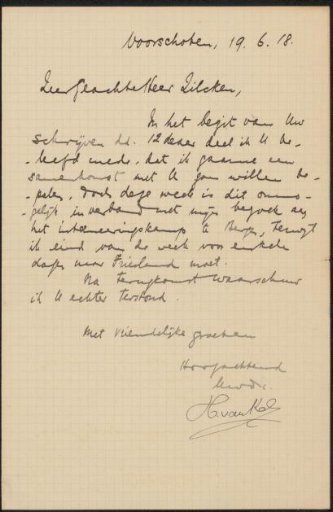 Voorschoten, 19.6.18.
Zeer Geachte Heer Zilcken,
In het bezit van Uw
schrijven dd. 12 dezer deel ik U be-
-leefd mede, dat ik gaarne een
samenkomst met U zou willen be-
-palen, doch deze week is dit onmo-
-gelijk in verband met mijn bezoek aan
het interneeringskamp te terwijl
ik eind van de week voor enkele
dagen naar Friesland moet.
Na terugkomst waarschuw
ik U echter terstond.
Met vriendelijke groeten
Hoogachtend
Uwdr.
H. van Kol